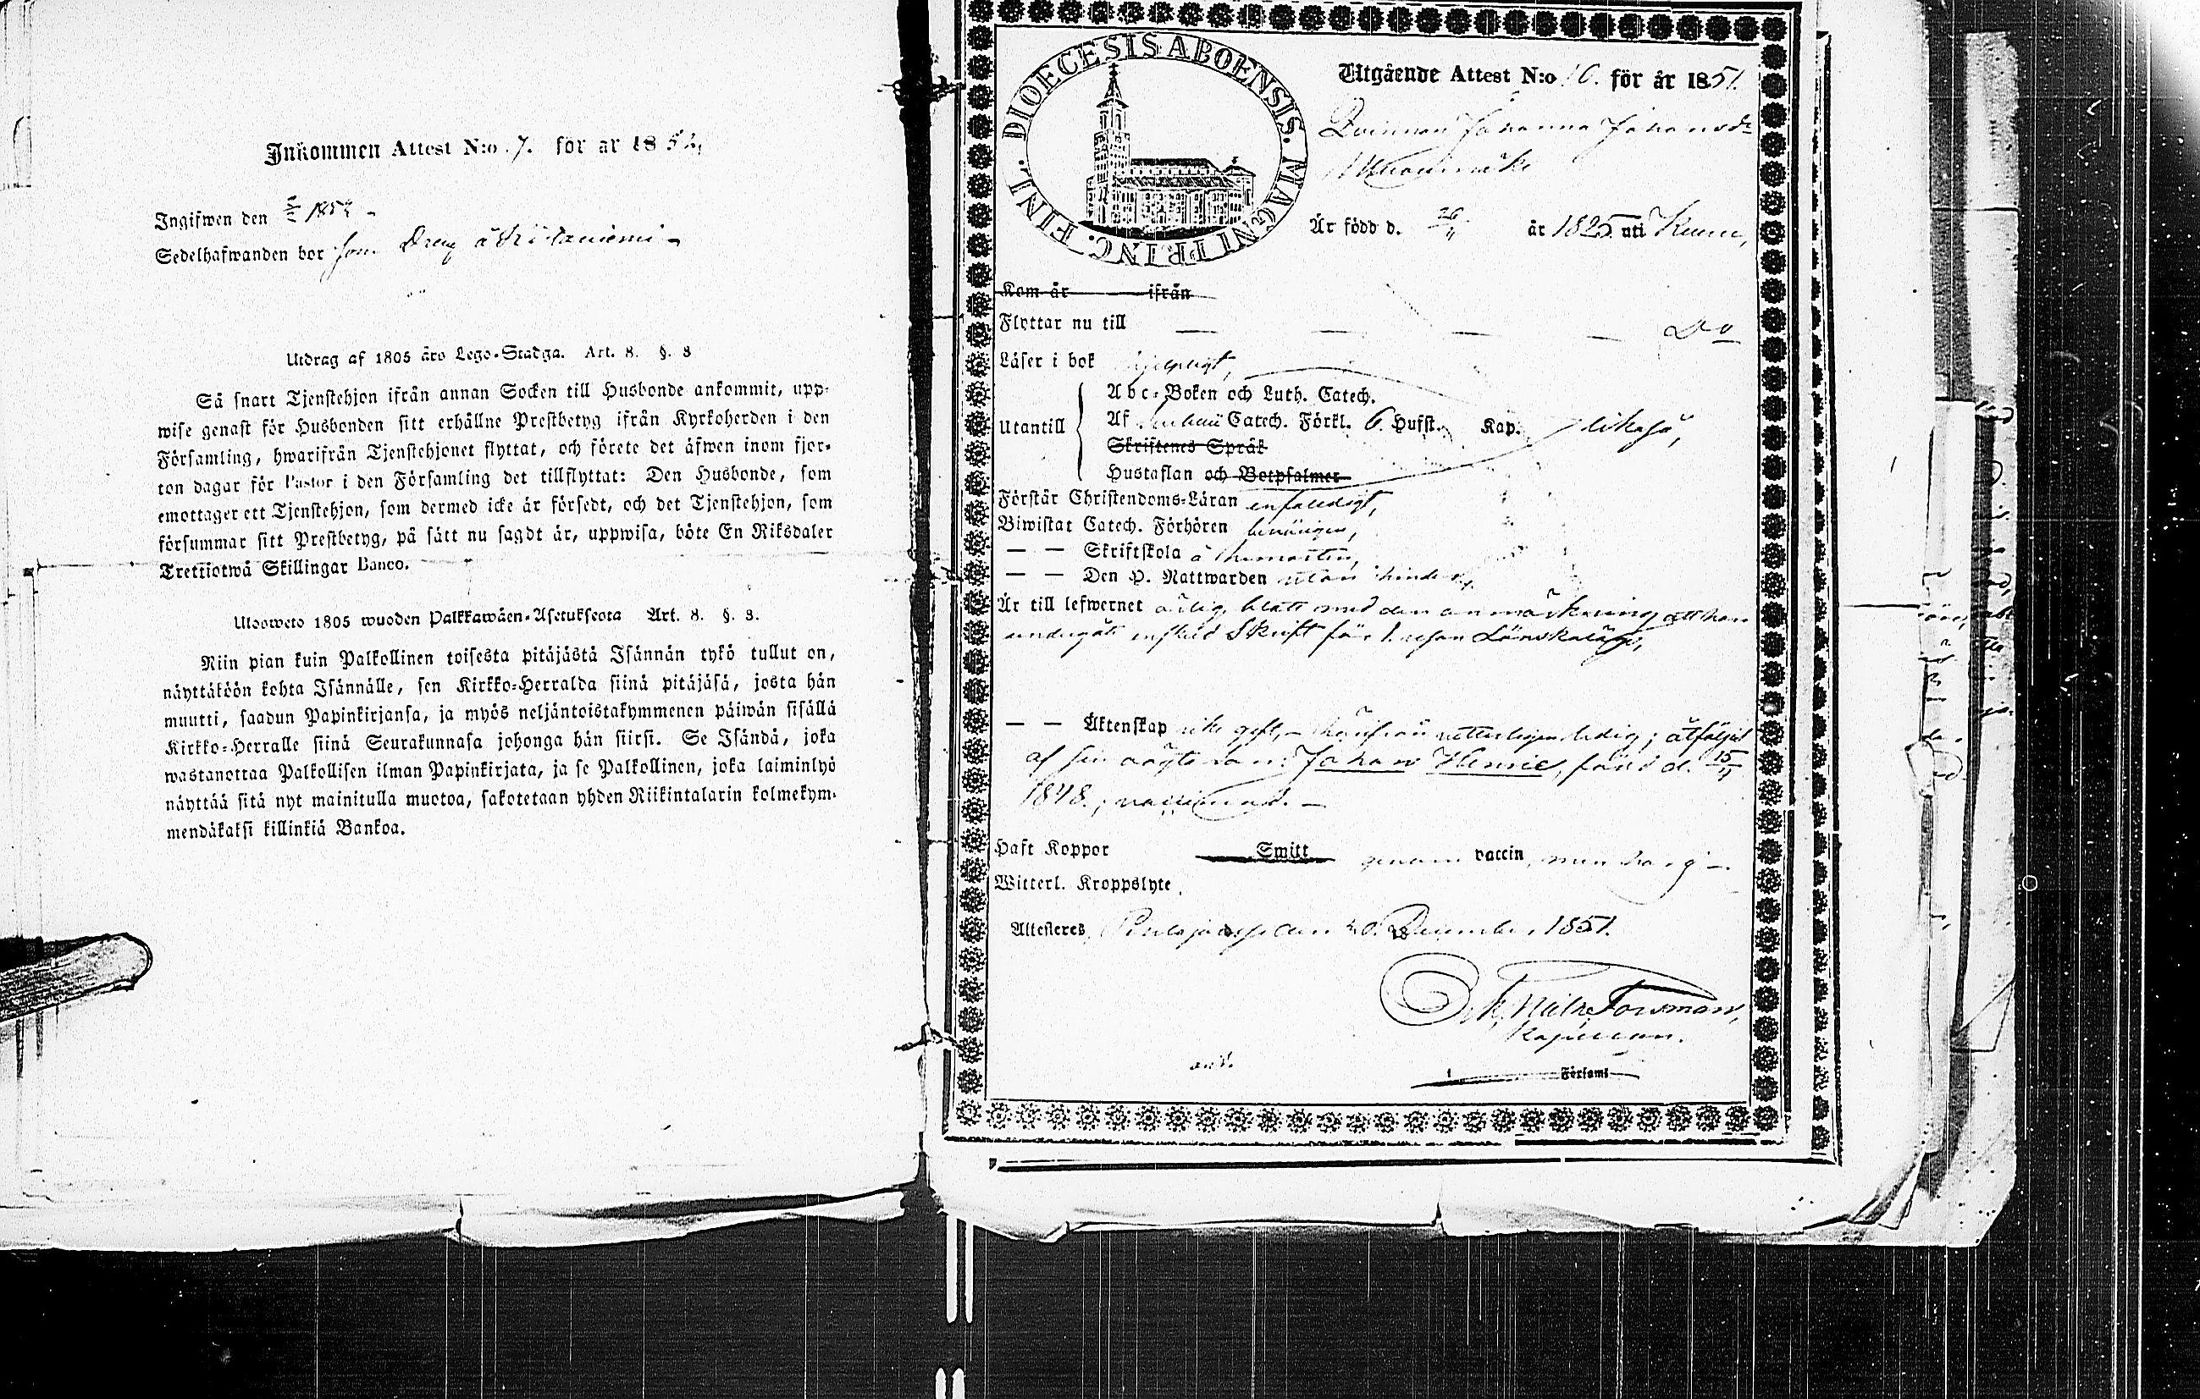 Inkommen Attest N:o 7. för år 1852
Ingifwen den 1852 -
Sedelhafwanden bor som Dreng å
Utdrag af 1805 års Lego-Stadga. Art. 8. §. 8
Så snart Tjenstehjon ifrån annan Socken till Husbonde ankommit, upp-
wise genast för Husbonden sitt erhållne Prestbetyg ifrån Kyrkoherden i den
Församling, hwarifrån Tjenstehjonet flyttat, och förete det äfwen inom fjor-
ton dagar för Pastor i den Församling det tillflyttat: Den Husbonde, som
emottager ett Tjenstehjon, som dermed icke är försedt, och det Tjenstehjon, som
försummar sitt Prestbetyg, på sätt nu sagdt är, uppwisa, böte En Riksdaler
Trettiotwå Skillingar Banco.
Ulosweto 1805 wuoden Palkkawäen-Asetuksesta Art. 8. §. 8.
Niin pian kuin Palkollinen toisesta pitäjästä Isännän tykö tullut on,
näyttäköön kohta Isännälle, sen Kirkko-Herralda siinä pitäjäsä, josta hän
muutti, saadun Papinkirjansa, ja myös neljäntoistakymmenen päiwän sisällä
Kirkko-Herralle siinä Seurakunnasa johonga hän siirsi. Se Isändä, joka
wastanottaa Palkollisen ilman Papinkirjata, ja se Palkollinen, joka laiminlyö
näyttää sitä nyt mainitulla muotoa, sakotetaan yhden Riikintalarin kolmekym-
mendäkaksi killinkiä Bankoa.
DIOECESIS ABOENSIS. MAGNI PRINC. FINL.
Utgående Attest N:o 10. för år 1851.
Qvinnan Johanna Johansdr
Är född d. 26/11 år 1825 uti Kumo,
Kom år ifrån
Flyttar nu till — — — — Do
Läser i bok hjelpligt,
Abc-Boken och Luth. Catech.
Utantill Af Catech. Förkl. 6. Hufst. Kap. likaså,
Skriftenes Språk
Hustaflan och Botpsalmer
Förstår Christendoms-Läran enfaldigt,
Biwistat Catech. Förhören
— — Skriftskola å
— — Den H. Nattwarden utan hinder,
Är till lefwernet ärlig, blott med den anmärkning att hon
undergått enskild Skrift för 1. resan Lönskaläge,
— — Äktenskap icke gift, - härifrån vetterligen ledig; åtföljd
af sin oägta son: Johan Henric, född d. 15/11
1848.; vaccinerad. —
Haft Koppor Smitt genom vaccin, men har ej -.
Witterl. Kroppslyte
Attesteres, den 20. December 1851.
Forsman,
Kapellan.
Församl